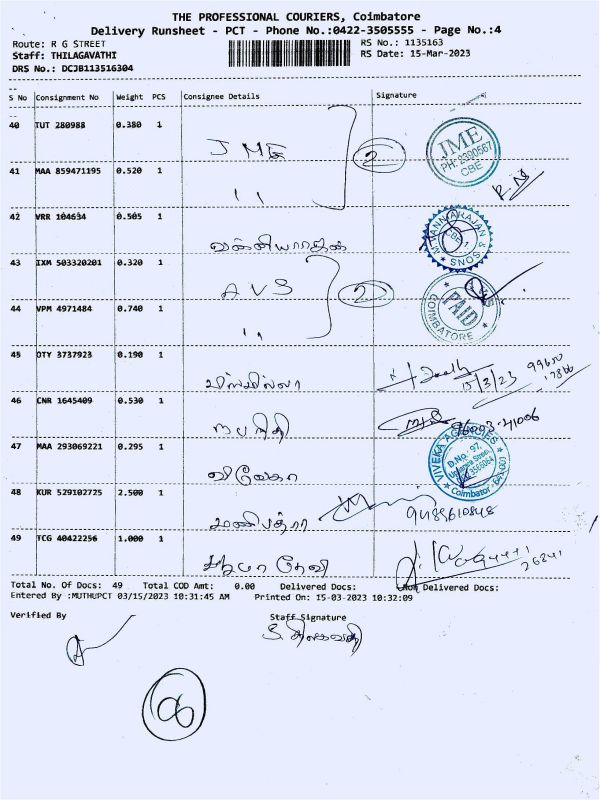 THE PROFESSIONAL COURIERS, Coimbatore
Delivery Runsheet - PCT - Phone No.:0422-3505555 - Page No.:4
Route: R G STREET
RS No.: 1135163
Staff: THILAGAVATHI
RS Date: 15-Mar-2023
DRS No.: DCJB113516304
S No Consignment No Weight PCS Consignee Details Signature
40 TUT 280988 0.380 1 JME 2
JME
PH: 2390567
CBE
41 MAA 859471195 0.520 1 ,,
42 VRR 104634 0.505 1
43 IXM 503320201 0.320 1 AVS 2
COIMBATORE
44 VPM 4971484 0.740 1 ,,
45 OTY 3737923 0.190 1 பிஸ்மில்லா
15/3/23
46 CNR 1645409 0.530 1
47 MAA 293069221 0.295 1 விவேகா
VIVEKA AGENCIES
D.No. 97,
Coimbatore - 641 001
48 KUR 529102725 2.500 1 மணிபத்ரா
49 TCG 40422256 1.000 1
Total No. Of Docs: 49 Total COD Amt: 0.00 Delivered Docs: Non Delivered Docs:
Entered By :MUTHUPCT 03/15/2023 10:31:45 AM Printed On: 15-03-2023 10:32:09
Verified By Staff Signature